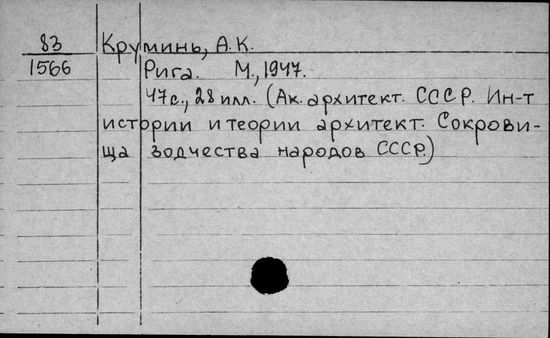 83 Круминь, А.К.
1566 Рига. М., 1947.
47с., 28 илл. (Ак. архитект. СССР. Ин-т
истории и теории архитект. Сокрови-
ща зодчества народов СССР.)